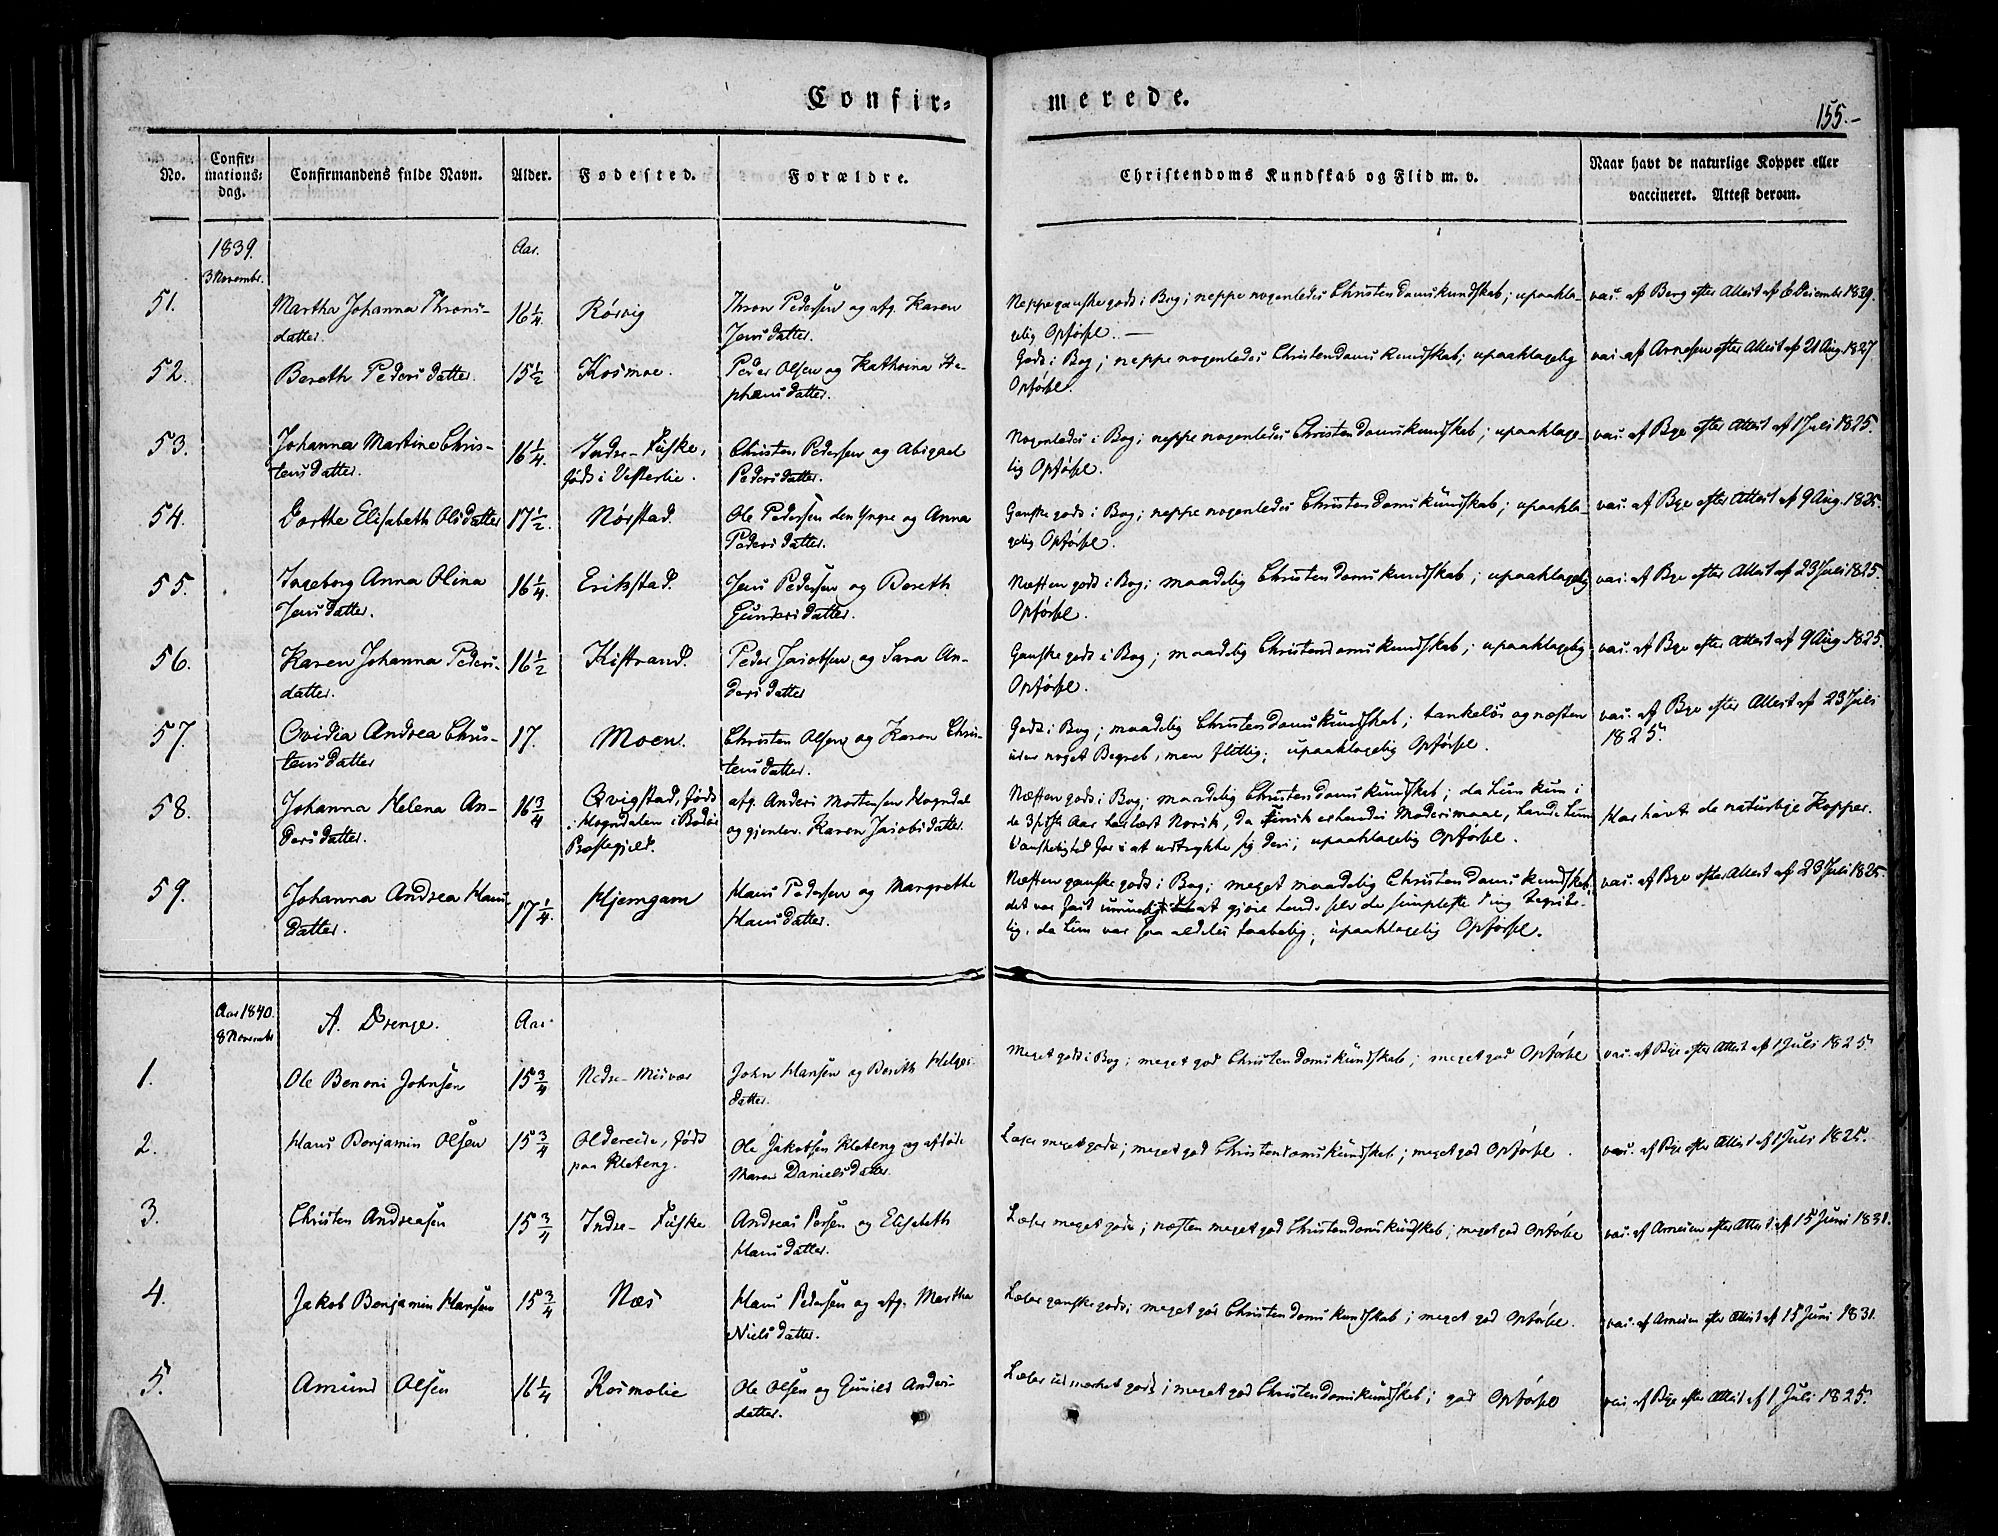 Confir-
merede.
155.-
No.
Confir-
mations-
dag.
Confirmandens fulde Navn.
Alder.
Fødested.
Forældre.
Christendoms Kundskab og Flid m. v.
Naar havt de naturlige Kopper eller
vaccineret. Attest derom.
1839.
3 Novembr.
Aar.
51.
Martha Johanna Throns-
datter.
16 1/4
Rørvig
Thron Pedersen og afg. Karen
Jensdatter.
Neppe ganske godt i Bog; neppe nogenledes Christendomskundskab; upaakla-
gelig Opførsel. —
vac. af Berg efter Attest af 6 Decembr 1839.
52.
Bereth Pedersdatter.
15 1/2
Kosmoe.
Peder Olsen og Kathrina Ste-
phensdatter.
Godt i Bog; neppe nogenledes Christendomskundskab; upaaklagelig
Opførsel.
vac. af Arnesen efter Attest af 21 Aug. 1827
53.
Johanna Martine Chris-
tensdatter.
16 1/4.
Indre-Fuske,
født i Vesterlie.
Christen Pedersen og Abigael
Pedersdatter.
Nogenledes i Bog; neppe nogenledes Christendomskundskab; upaaklage-
lig Opførsel.
vac. af Bye efter Attest af 1 Juli 1825.
54.
Dorthe Elisabeth Olsdatter
17 1/2.
Nørstad.
Ole Pedersen den Yngre og Anna
Pedersdatter.
Ganske godt i Bog; neppe nogenledes Christendomskundskab; upaakla-
gelig Opførsel.
vac. af Bye efter Attest af 9 Aug. 1825.
55.
Ingeborg Anna Olina
Jensdatter.
16 1/4.
Erikstad.
Jens Pedersen og Bereth
Gundersdatter.
Næsten godt i Bog; maadelig Christendomskundskab; upaaklagelig
Opførsel.
vac. af Bye efter Attest af 23 Juli 1825.
56.
Karen Johanna Peders-
datter.
16 1/2
Kistrand.
Peder Jacobsen og Sara An-
dersdatter
Ganske godt i Bog; maadelig Christendomskundskab; upaaklagelig
Opførsel.
vac. af Bye efter Attest af 9 Aug. 1825.
57.
Ovidia Andrea Chris-
tensdatter
17.
Moen.
Christen Olsen og Karen Chris-
tensdatter.
Godt i Bog; maadelig Christendomskundskab; tankeløs og næsten
uden noget Begreb, men flittig; upaaklagelig Opførsel.
vac. af Bye efter Attest af 23 Juli
1825.
58.
Johanna Helena An-
dersdatter.
16 3/4
Qvigstad, født
i Hogndalen i Bodøe
Præstegjeld.
afg. Anders Mortensen Hogndal
og gjenlev. Karen Jacobsdatter.
Næsten godt i Bog; maadelig Christendomskundskab; da hun kun i
de 3 sidste Aar har læst Norsk, da Finsk er hendes Modersmaal, havde hun
Vanskelighed for at udtrykke sig deri; upaaklagelig Opførsel.
Har havt de naturlige Kopper.
59.
Johanna Andrea Hans-
datter.
17 1/4.
Hjemgam
Hans Pedersen og Margrethe
Hansdatter.
Næsten ganske godt i Bog; meget maadelig Christendomskundskab;
det var fast umueligt at gjøre hende selv de simpleste Ting begribe-
lig, da hun var saa aldeles taabelig; upaaklagelig Opførsel.
vac. af Bye efter Attest af 23 Juli 1825.
Aar 1840.
8 Novembr
A. Drenge.
Aar.
1.
Ole Benoni Johnsen
15 3/4
Nedre-Misvær
John Hansen og Berith Helges-
datter.
Meget godt i Bog; meget god Christendomskundskab; meget god Opførsel
vac. af Bye efter Attest af 1 Juli 1825.
2.
Hans Benjamin Olsen
15 3/4
Oldereide, født
paa Kleteng.
Ole Jakobsen Kleteng og afdøde
Maren Danielsdatter.
Læser meget godt; meget god Christendomskundskab; meget god Opførsel.
vac. af Bye efter Attest af 1 Juli 1825.
3.
Christen Andreasen
15 3/4
Indre-Fuske
Andreas Persen og Elisabeth
Hansdatter.
Læser meget godt; næsten meget god Christendomskundskab; meget god Opførsel
vac. af Arnesen efter Attest af 15 Juni 1831.
4.
Jakob Benjamin Hansen
15 3/4
Næs
Hans Pedersen og afg. Martha
Nielsdatter.
Læser ganske godt; meget god Christendomskundskab; meget god Opførsel.
vac. af Arnesen efter Attest af 15 Juni 1831.
5.
Amund Olsen
16 1/4
Kosmolie
Ole Olsen og Gunild Anders-
datter.
Læser udmærket godt; meget god Christendomskundskab; god Opførsel
vac. af Bye efter Attest af 1 Juli 1825.